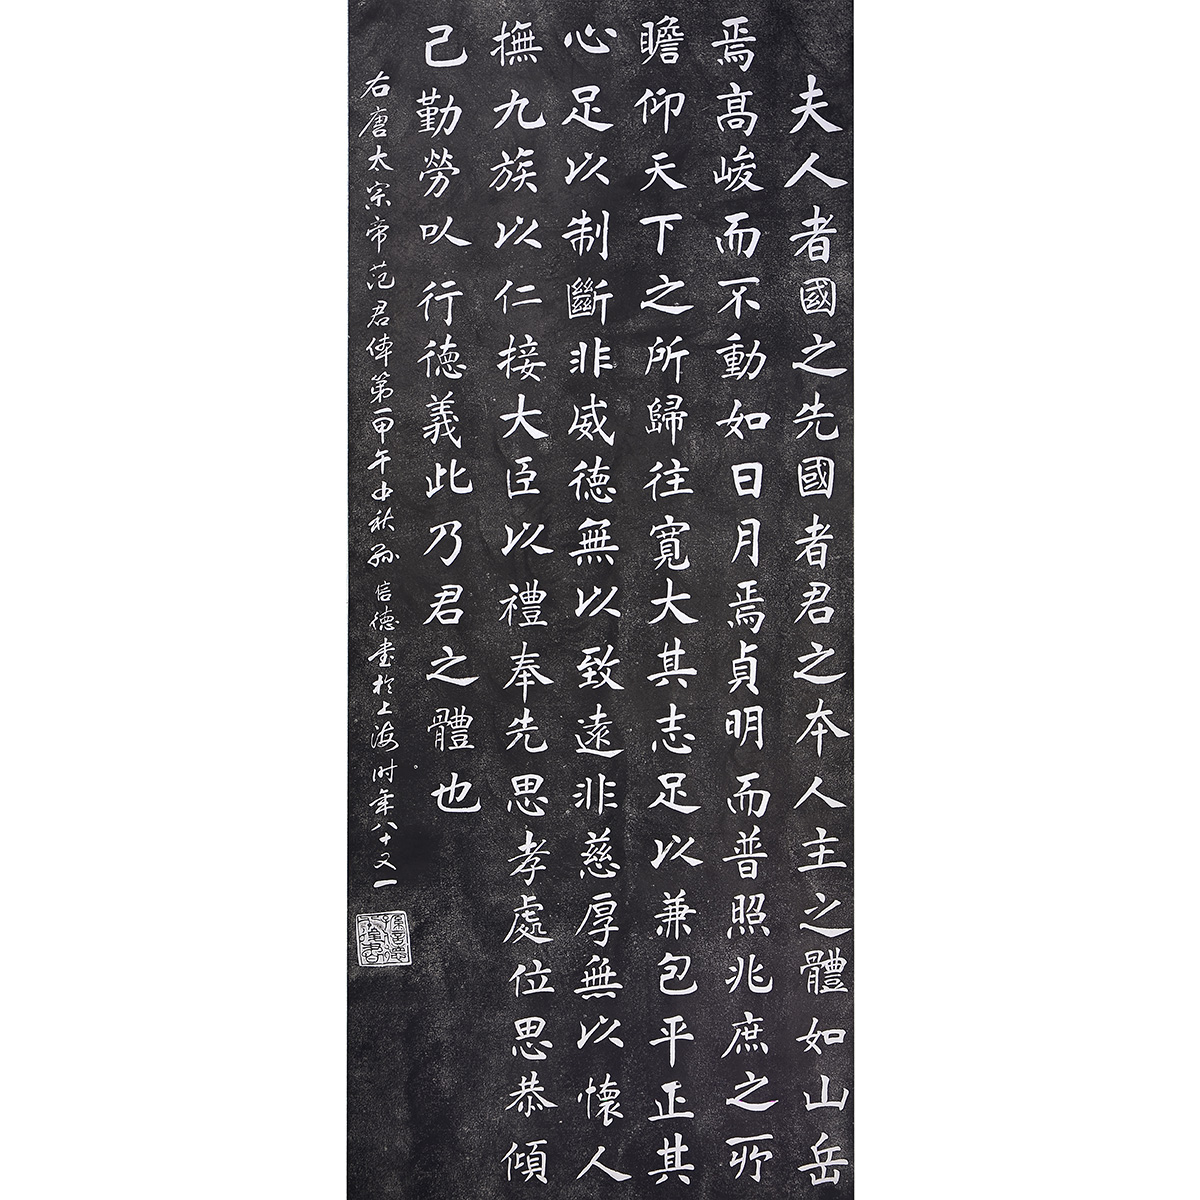 夫人者國之先國者君之本人主之體如山岳
焉高峻而不動如日月焉貞明而普照兆庶之所
瞻仰天下之所歸往寬大其志足以兼包平正其
心足以制斷非威德無以致遠非慈厚無以懷人
撫九族以仁接大臣以禮奉先思孝處位思恭傾
己勤勞以行德義此乃君之體也
右唐太宗帝范君体第一甲午中秋孫信德書於上海时年八十又一